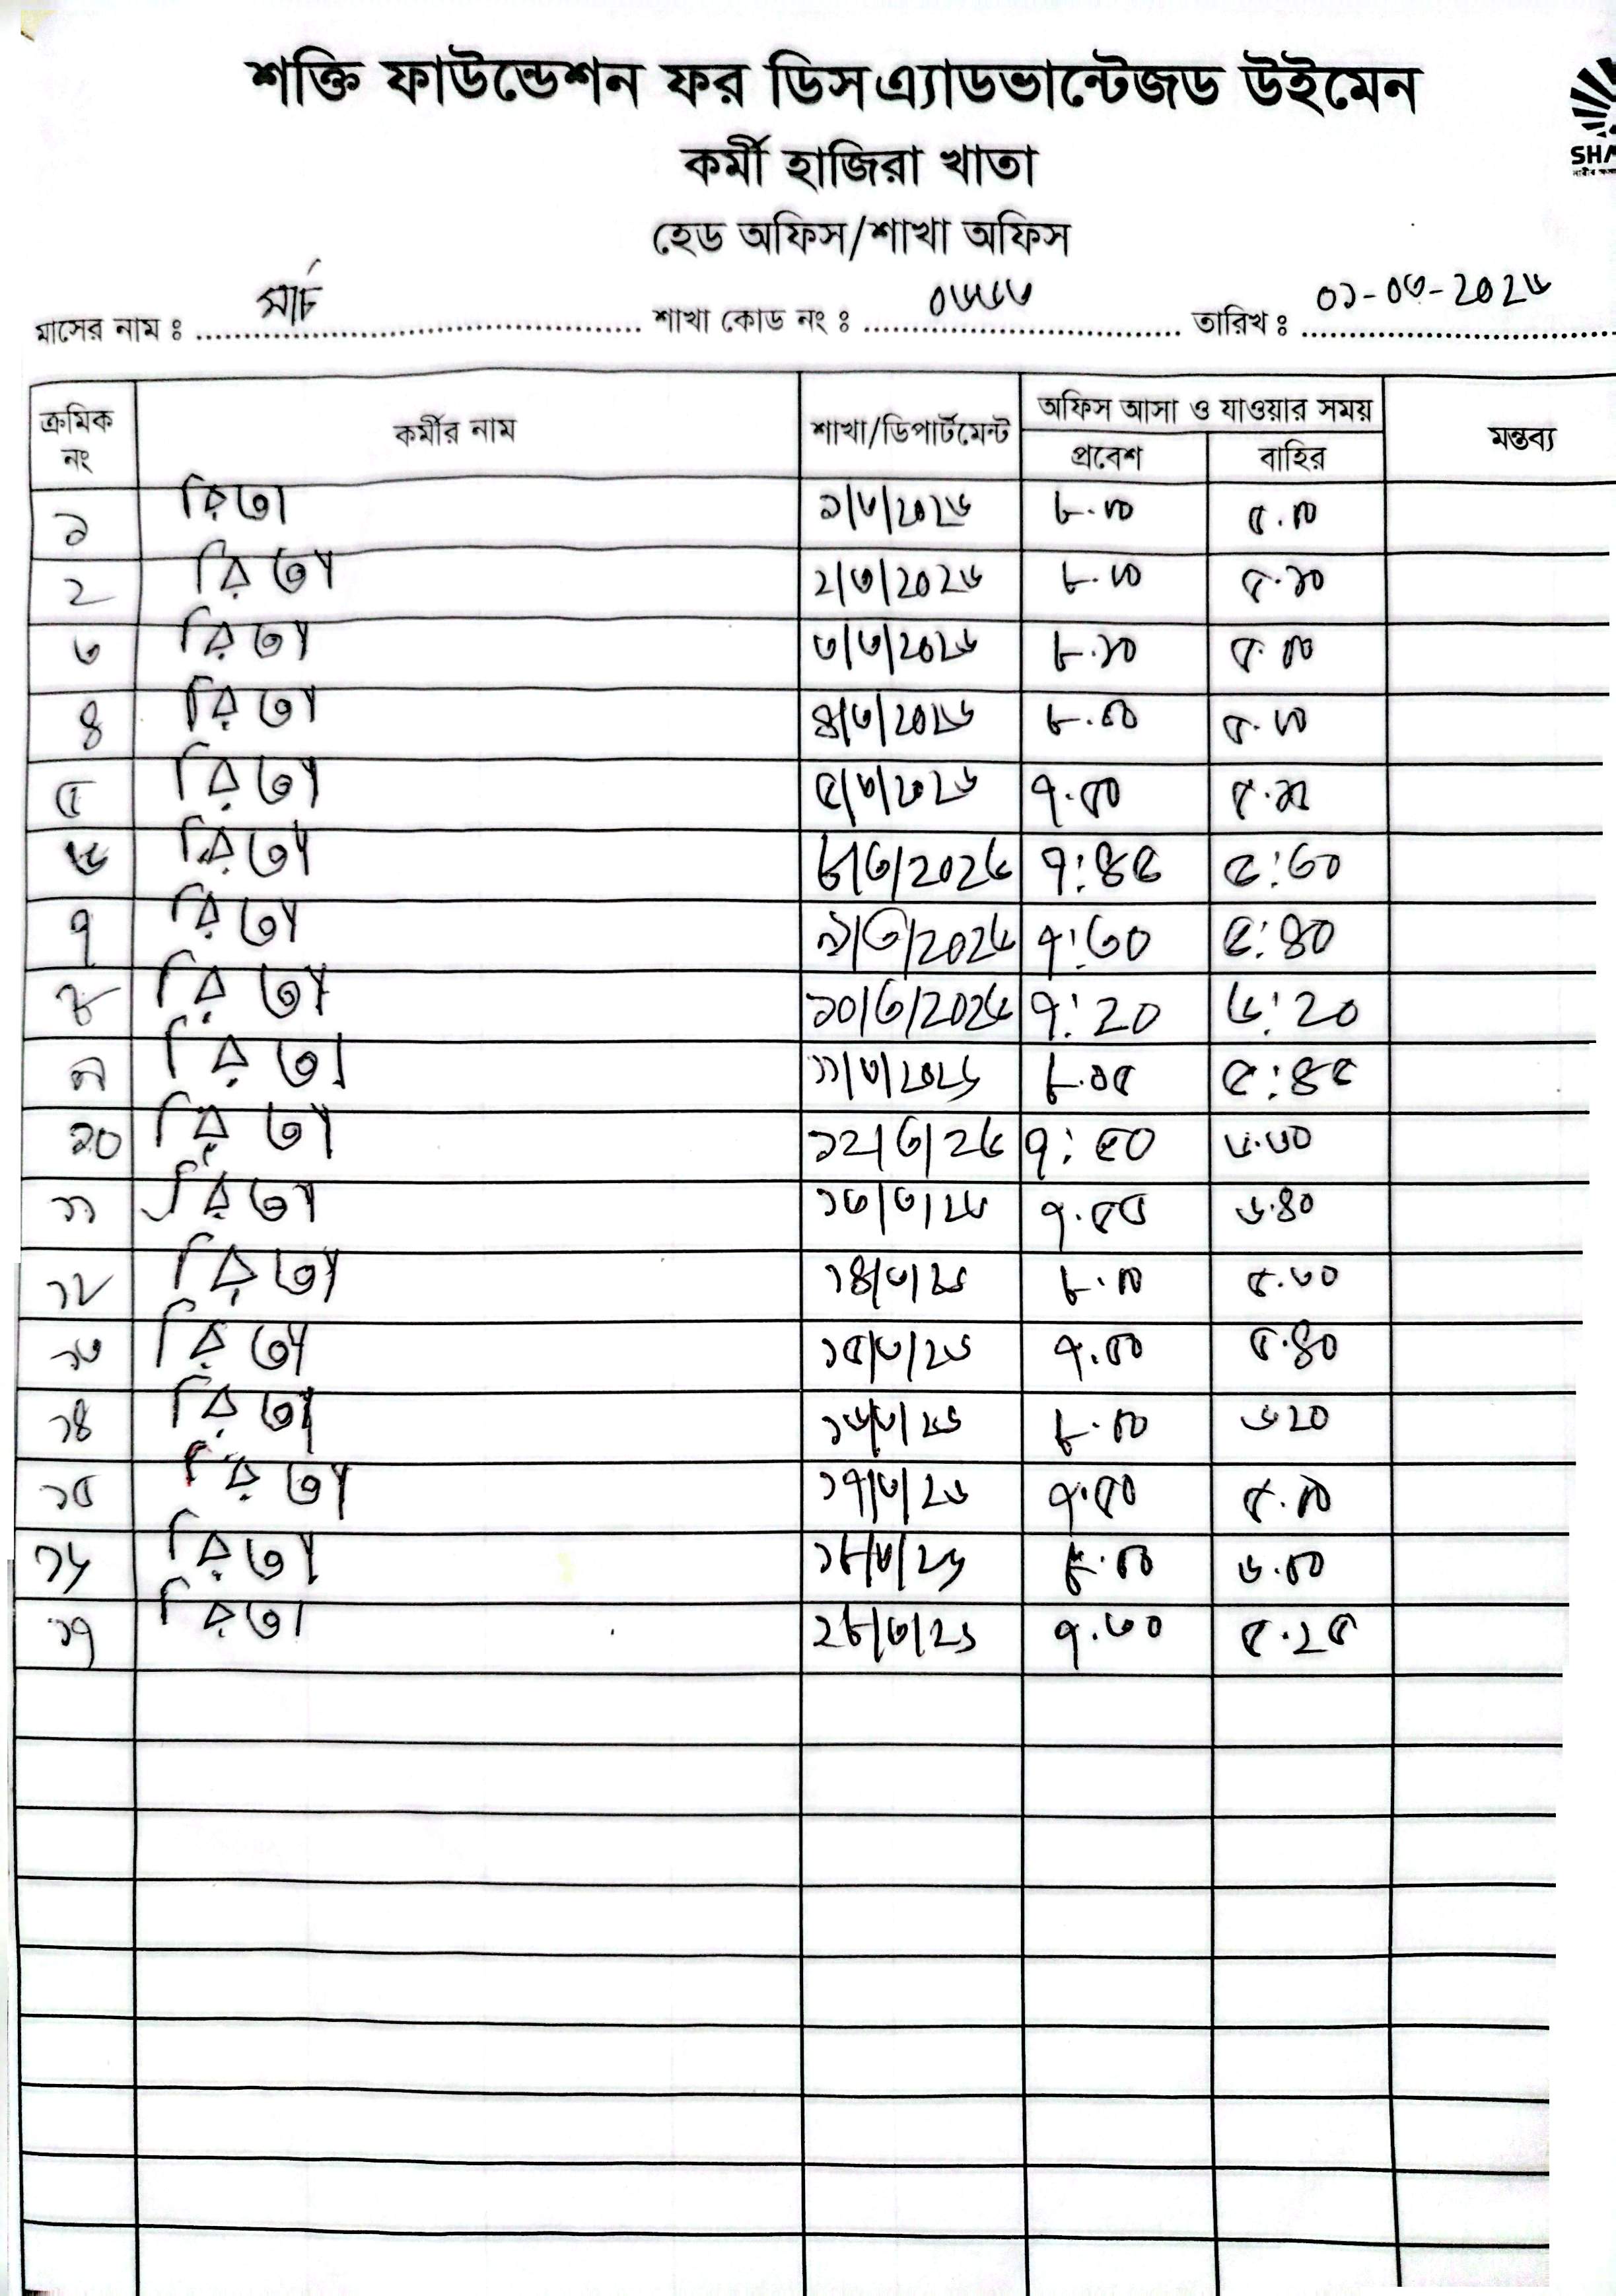 শক্তি ফাউন্ডেশন ফর ডিসএ্যাডভান্টেজড উইমেন
কর্মী হাজিরা খাতা
হেড অফিস/শাখা অফিস
মাসের নাম ঃ মার্চ শাখা কোড নং ঃ ০৬৬৬ তারিখ ঃ ০১-০৩-২০২৬
ক্রমিক নং কর্মীর নাম শাখা/ডিপার্টমেন্ট অফিস আসা ও যাওয়ার সময় মন্তব্য
প্রবেশ বাহির
১ রিতা ১/৩/২০২৬ ৮.১০ ৫.১০
২ রিতা ২/৩/২০২৬ ৮.১০ ৫.১০
৩ রিতা ৩/৩/২০২৬ ৮.১০ ৫.১০
৪ রিতা ৪/৩/২০২৬ ৮.০০ ৫.১০
৫ রিতা ৫/৩/২০২৬ ৭.৫০
৬ রিতা ৮/৩/২০২৬ ৭:৪৫ ৫:৩০
৭ রিতা ৯/৩/২০২৬ ৭:৩০ ৫:৪০
৮ রিতা ১০/৩/২০২৬ ৭:২০ ৬:২০
৯ রিতা ১১/৩/২০২৬ ৮.০৫ ৫:৪৫
১০ রিতা ১২/৩/২৬ ৭:৫০ ৬.৩০
১১ রিতা ১৩/৩/২৬ ৭.৫৫ ৬.৪০
১২ রিতা ১৪/৩/২৬ ৮.১০ ৫.৩০
১৩ রিতা ১৫/৩/২৬ ৭.৫০ ৫.৪০
১৪ রিতা ১৬/৩/২৬ ৮.১০ ৬২০
১৫ রিতা ১৭/৩/২৬ ৭.৫০ ৫.১০
১৬ রিতা ১৮/৩/২৬ ৮.০০ ৬.০০
১৭ রিতা ২৮/৩/২৬ ৭.৩০ ৫.২৫